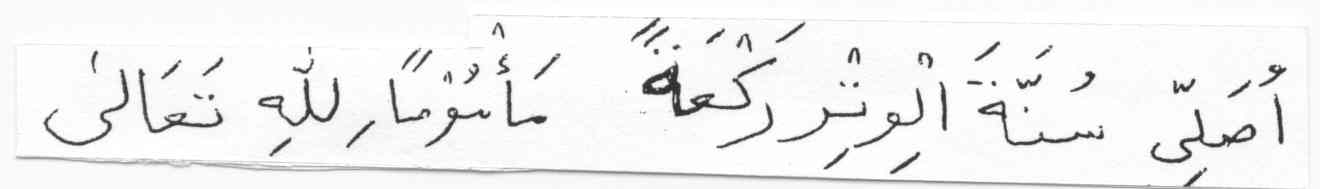 أُصَلِّى سُنَّةَ الْوِتْرِ رَكْعَةً مَأْمُوْمًا لِلّٰهِ تَعَالٰى